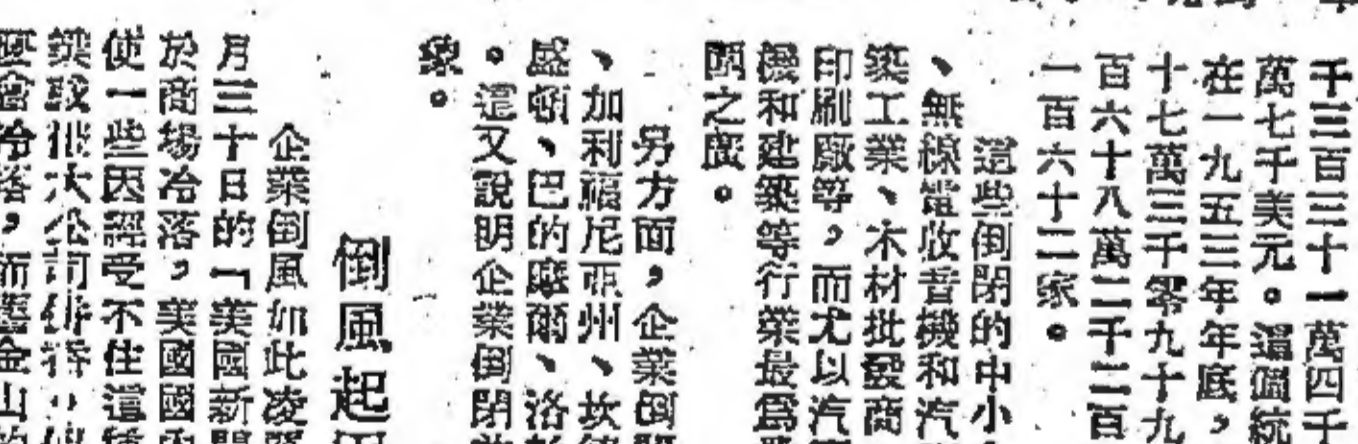 千三百三十一萬四千
萬七千美元。這個統
在一九五三年年底，
十七萬三千零九十九
百六十八萬二千二百
一百六十二家。
這些倒閉的中小
、無線電收音機和汽
築工業、木材批發商
印刷廠等，而尤以汽
機和建築等行業最爲
之廣。
另方面，企業倒
、加利福尼亞州、坎
盛頓、巴的摩爾、洛
。這又說明企業倒閉
象。
倒風起
企業倒風如此凌
月三十日的「美國新聞
於商場冷落，美國國內
使一些因經受不住這種
大公司
會冷落，而舊金山的